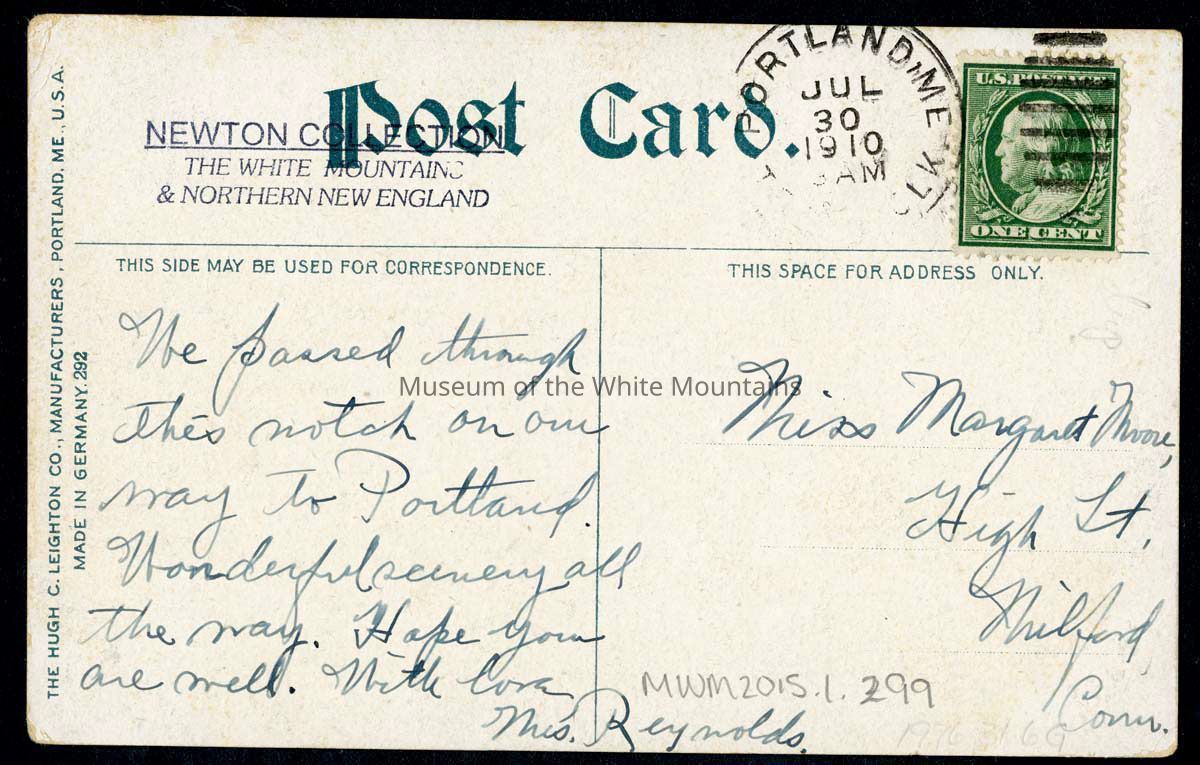 Post Card.
NEWTON COLLECTION
THE WHITE MOUNTAINS
& NORTHERN NEW ENGLAND
PORTLAND, ME
JUL
30
1910
AM
U.S. POSTAGE
ONE CENT
THE HUGH C. LEIGHTON CO., MANUFACTURERS, PORTLAND, ME., U.S.A.
MADE IN GERMANY. 292
THIS SIDE MAY BE USED FOR CORRESPONDENCE.
THIS SPACE FOR ADDRESS ONLY.
We passed through
this notch on our
way to Portland.
Wonderful scenery all
the way. Hope you
are well. With love
Mrs. Reynolds.
Museum of the White Mountains
Miss Margaret Moore,
High St.,
Milford,
Conn.
MWM2015.1.299